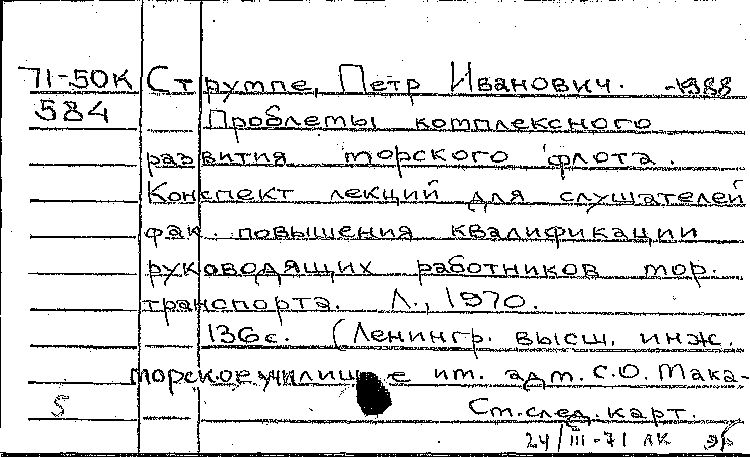 71-50К Струмпе, Петр Иванович. -1988
584 Проблемы комплексного
развития морского флота.
Конспект лекций для слушателей
фак. повышения квалификации
руководящих работников мор.
транспорта. Л., 1970.
136с. (Ленингр. высш. инж.
морское училище им. адм. С.О. Мака-
5 См.след.карт.
24/III-71 ЛК